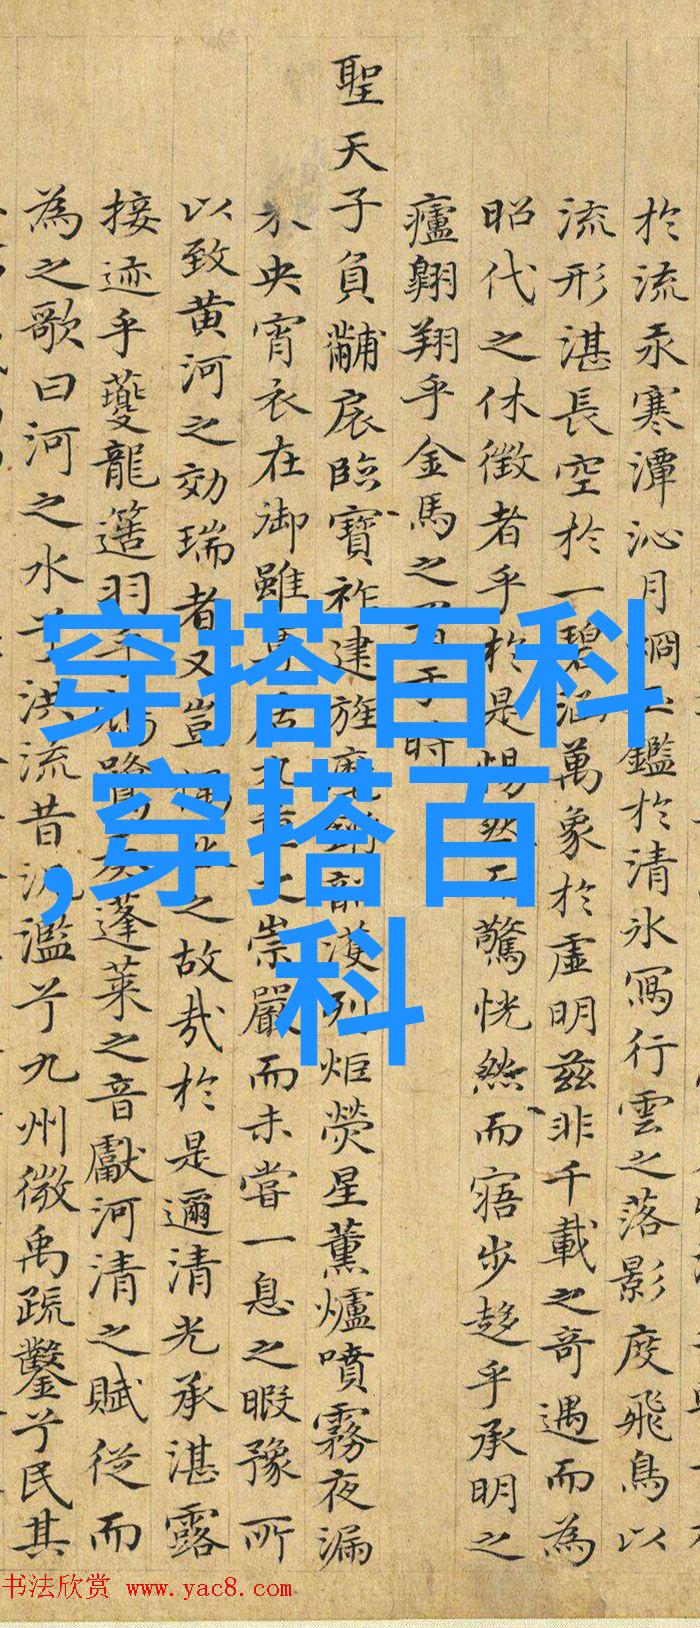 於流汞寒潭沁月烱玉鑑於清氷寫行雲之落影度飛鳥以
流形湛長空於一碧涵萬象於虛明茲非千載之奇遇而為
昭代之休徵者乎於是惕然而驚恍然而寤步趍乎承明之
廬翱翔乎金馬之門于時
聖天子負黼扆臨寶祚建旌麾韶濩列炬熒星薰爐噴霧夜漏
未央宵衣在御雖身居九重之崇嚴而未嘗一息之暇豫所
以致黄河之効瑞者又豈偶然之故哉於是邇清光承湛露
接迹乎夔龍簉羽乎鵷鷺蓬萊之音獻河清之賦從而
為之歌曰河之水兮洪流昔汎濫兮九州微禹疏鑿兮民其
穿搭百科
,穿搭百
科
书法欣赏 www.yac8.com